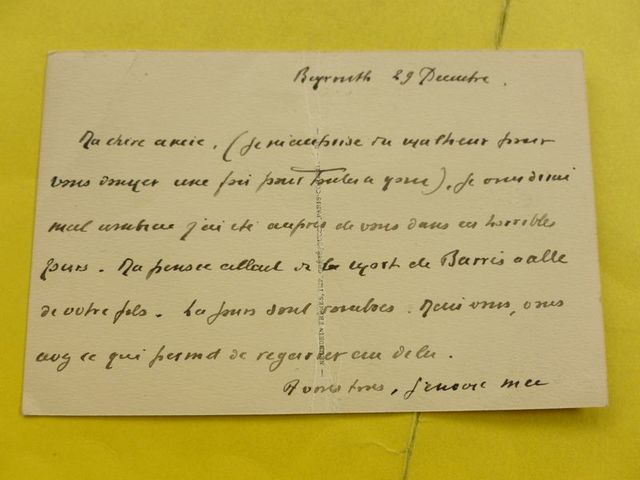 Beyrouth 29 Décembre.
Ma chère amie, (Je m'autorise du malheur pour
vous donner une fois pour toutes ce nom), Je vous dirai
mal combien j'ai été auprès de vous dans ces horribles
jours. Ma pensée allait de la mort de Barrès à celle
de votre fils. Les jours sont sombres. Mais vous, vous
avez ce qui permet de regarder au delà.
A vous tous,